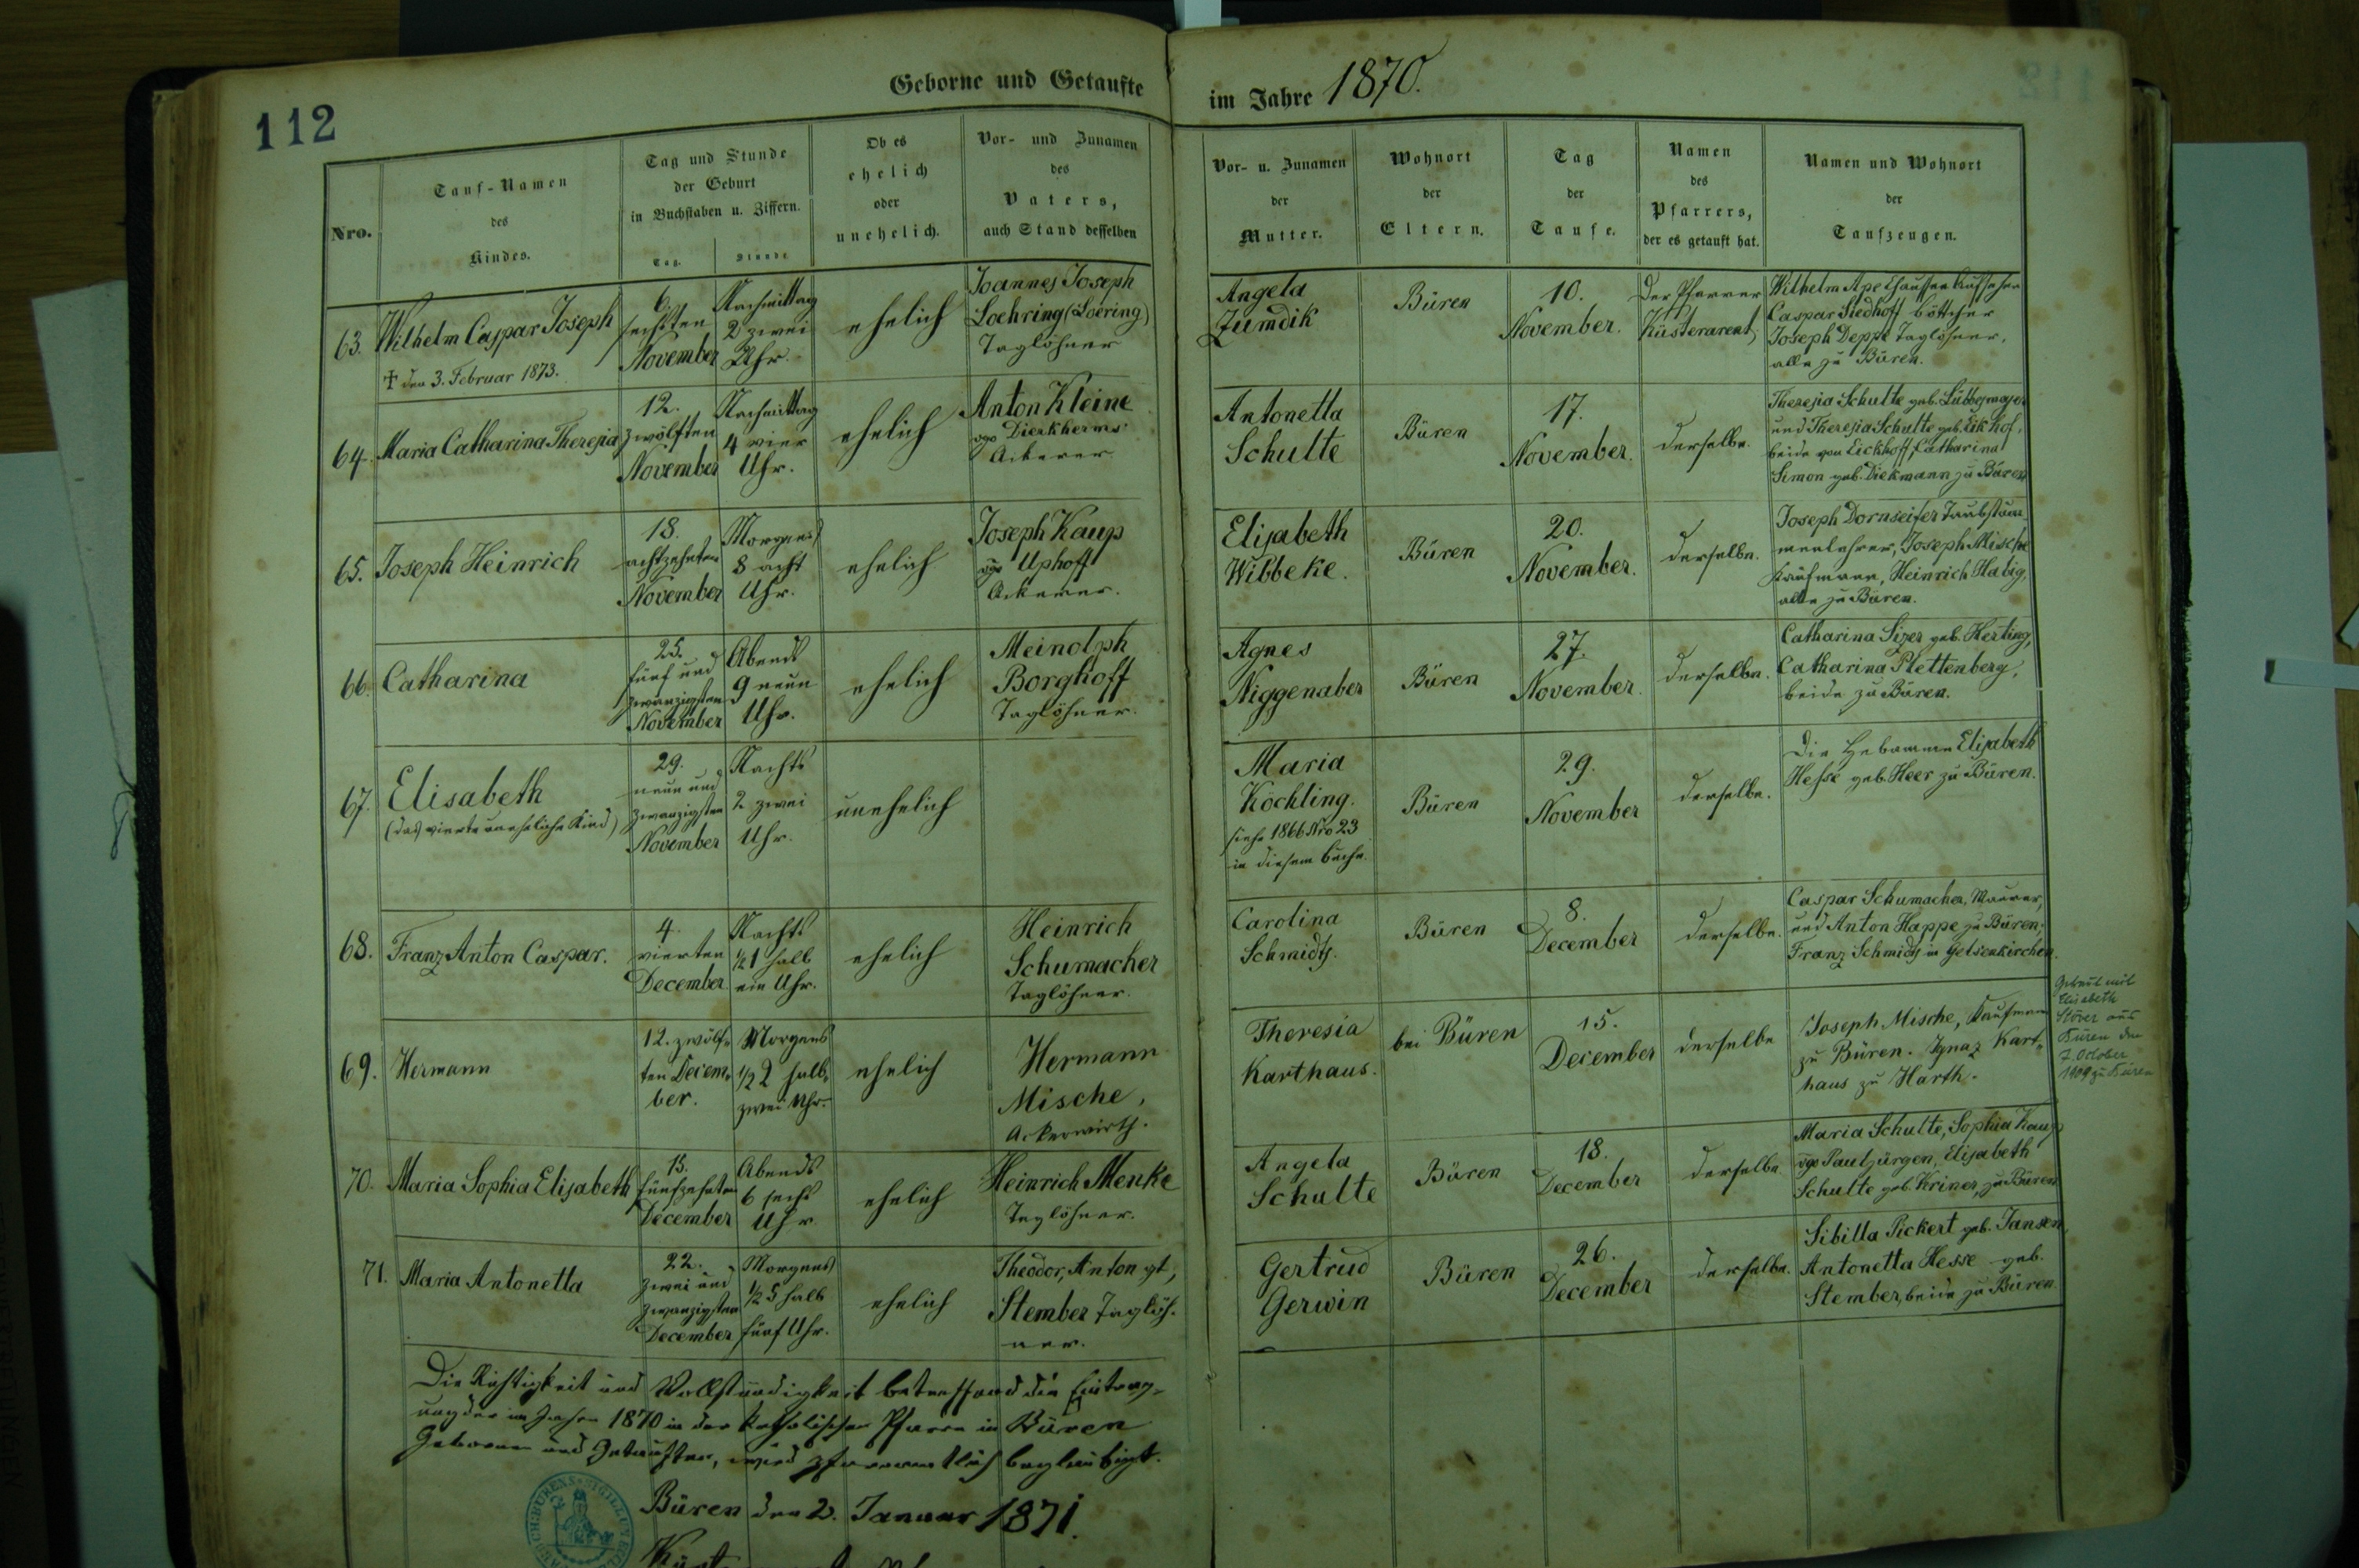 112
Geborne und Getaufte im Jahre 1870.
Nro.
Tauf-Namen
des
Kindes.
Tag und Stunde
der Geburt
in Buchstaben u. Ziffern.
Tag.
Stunde
Ob es
ehelich
oder
unehelich.
Vor- und Zunamen
des
Vaters,
auch Stand desselben
Vor- u. Zunamen
der
Mutter.
Wohnort
der
Eltern.
Tag
der
Taufe.
Namen
des
Pfarrers,
der es getauft hat.
Namen und Wohnort
der
Taufzeugen.
63.
Wilhelm Caspar Joseph
† den 3. Februar 1873.
6.
sechsten
November
Nachmittag
2 zwei
Uhr.
ehelich
Joannes Joseph
Loehring (Loering)
Taglöhner
Angela
Zumdik
Büren
10.
November.
Der Pfarrer
Küsterarent
Wilhelm Ape Chaussee Aufseher
Caspar Siedhoff Böttcher
Joseph Deppe Taglöhner,
alle zu Büren.
64.
Maria Catharina Theresia
12.
zwölften
November
Nachmittag
4 vier
Uhr.
ehelich
Anton Kleine
vgo Dierkherms
Ackerer
Antonetta
Schulte
Büren
17.
November.
derselbe.
Theresia Schulte geb. Lübbesmeyer
und Theresia Schulte geb. Eikhof,
beide von Eickhoff; Catharina
Simon geb. Diekmann zu Büren
65.
Joseph Heinrich
18.
achtzehnten
November
Morgens
8 acht
Uhr.
ehelich
Joseph Kaup
vgo Uphoff
Ackerer.
Elisabeth
Wibbeke.
Büren
20.
November.
derselbe.
Joseph Dornseifer Taubstum-
menlehrer, Joseph Mische
Kaufmann, Heinrich Habig,
alle zu Büren.
66.
Catharina
25.
fünf und
zwanzigsten
November
Abends
9 neun
Uhr.
ehelich
Meinolph
Borghoff
Taglöhner.
Agnes
Niggenaber
Büren
27.
November.
derselbe.
Catharina Sizer geb. Herting,
Catharina Plettenberg,
beide zu Büren.
67.
Elisabeth
(das vierte uneheliche Kind)
29.
neun und
zwanzigsten
November
Nachts
2 zwei
Uhr.
unehelich
Maria
Köchling.
siehe 1866 Nro 23
in diesem Buche.
Büren
29.
November
derselbe.
Die Hebamme Elisabeth
Hesse geb. Heer zu Büren.
68.
Franz Anton Caspar.
4.
vierten
December.
Nachts
½ 1 halb
ein Uhr.
ehelich
Heinrich
Schumacher
Taglöhner.
Carolina
Schmidts.
Büren
8.
December
derselbe.
Caspar Schumacher, Maurer,
und Anton Happe zu Büren;
Franz Schmidts in Gelsenkirchen.
69.
Hermann
12. zwölf-
ten Decem-
ber.
Morgens
½ 2 halb
zwei Uhr.
ehelich
Hermann
Mische,
Ackerwirth.
Theresia
Karthaus.
bei Büren
15.
December
derselbe
Joseph Mische, Kaufmann
zu Büren. Ignaz Kart-
haus zu Harth.
Getraut mit
Elisabeth
Stöver aus
Büren den
7. October
1909 zu Büren
70.
Maria Sophia Elisabeth
15.
fünfzehnten
December
Abends
6 sechs
Uhr
ehelich
Heinrich Menke
Taglöhner.
Angela
Schulte
Büren
18.
December
derselbe.
Maria Schulte, Sophia Kaup
vgo Pautjürgen, Elisabeth
Schulte geb. Kriner, zu Büren
71.
Maria Antonetta
22.
zwei und
zwanzigsten
December
Morgens
½ 5 halb
fünf Uhr.
ehelich
Theodor, Anton gt,
Stember Taglöh-
ner.
Gertrud
Gerwin
Büren
26.
December
derselbe.
Sibilla Pickert geb. Jansen,
Antonetta Hesse geb.
Stember, beide zu Büren.
Die Richtigkeit und Vollständigkeit betreffend die Eintrag-
ung der im Jahre 1870 in der katholischen Pfarre in Büren
Gebornen und Getauften, wird pfarramtlich beglaubigt.
Büren den 2. Januar 1871.